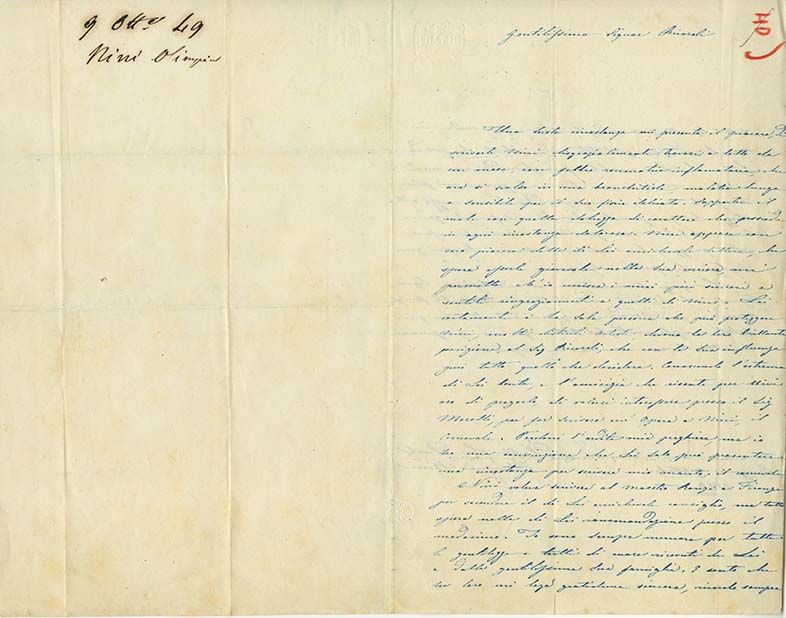 9 Ott.e 49
Nini Olimpia
Gentilissimo Signor Ricordi
Una trista circostanza mi presenta il piacere di
scriverle. Nini disgraziatamente trovasi a letto da
un mese, con febbre reumatica infiammatoria che
ora si svolse in una malattia lunga
e sensibile per il suo fisico delicato. Sopporta il
male con quella dolcezza di carattere che possiede
in ogni circostanza dolorosa. Nini apprese con
vivo piacere dalla di Lei amichevole lettera, che
spera poterle giovare nella sua carriera, mi
permetta ch'io unisca i miei più sinceri e
sentiti ringraziamenti a quelli di Nini. Lei
certamente è la sola persona che può proteggere
Nini, molti distinti artisti devono la loro brillante
posizione, al Sig Ricordi, che con la sua influenza
può tutto quello che desidera. Conoscendo l'estrema
di Lei bontà, e l'amicizia che risente per Nini
oso di pregarlo, di volersi interporre presso il Sig
Merelli, per far scrivere un'Opera a Nini, il
Carnevale. Perdoni l'ardita mia preghiera, ma io
ho una convinzione che Lei solo può presentare
una circostanza per scrivere mio marito, il carnevale
Nini voleva scrivere al maestro a Firenze
per secondare il di Lei amichevole consiglio, ma tutto
spera nella di Lei raccomandazione presso il
medesimo. Io sono sempre memore per tutte
le gentilezze e tratti di cuore ricevuti da Lei
e dalla gentilissima sua famiglia. E sento che
a loro mi lega gratitudine sincera, ricordo sempre